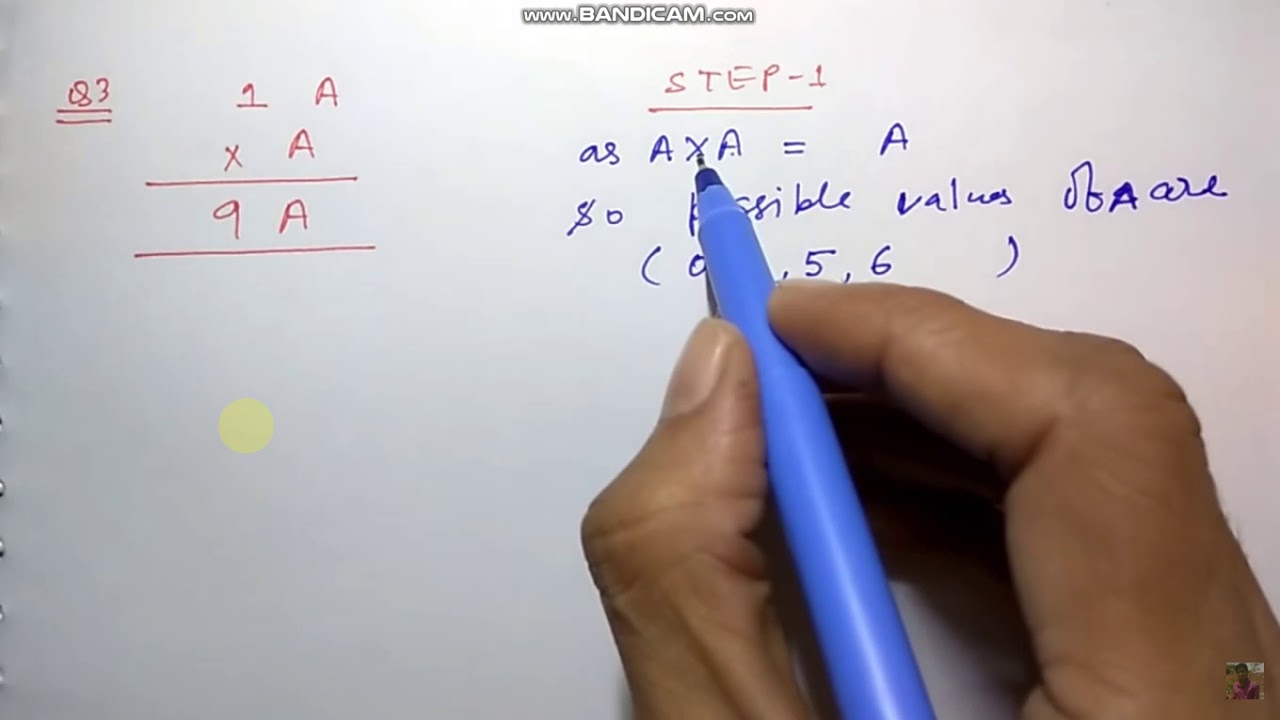 www.BANDICAM.com
Q3
1 A
x A
9 A
STEP-1
as A x A = A
so possible values of A are
( 0 , 5, 6 )